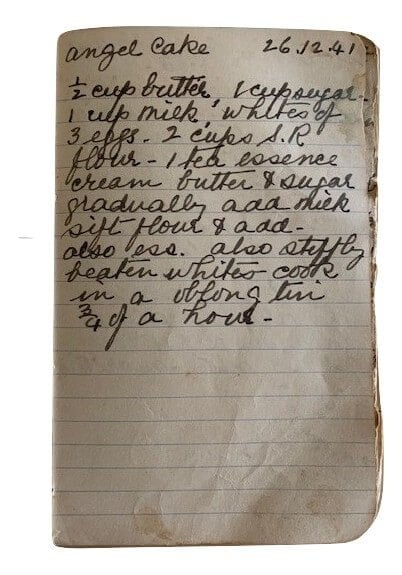 angel cake 26.12.41
½ cup butter, 1 cup sugar.
1 cup milk, whites of
3 eggs. 2 cups S.R
flour - 1 tea essence
cream butter & sugar
gradually add milk
sift flour & add -
also ess. also stiffly
beaten whites cook
in a oblong tin
¾ of a hour -